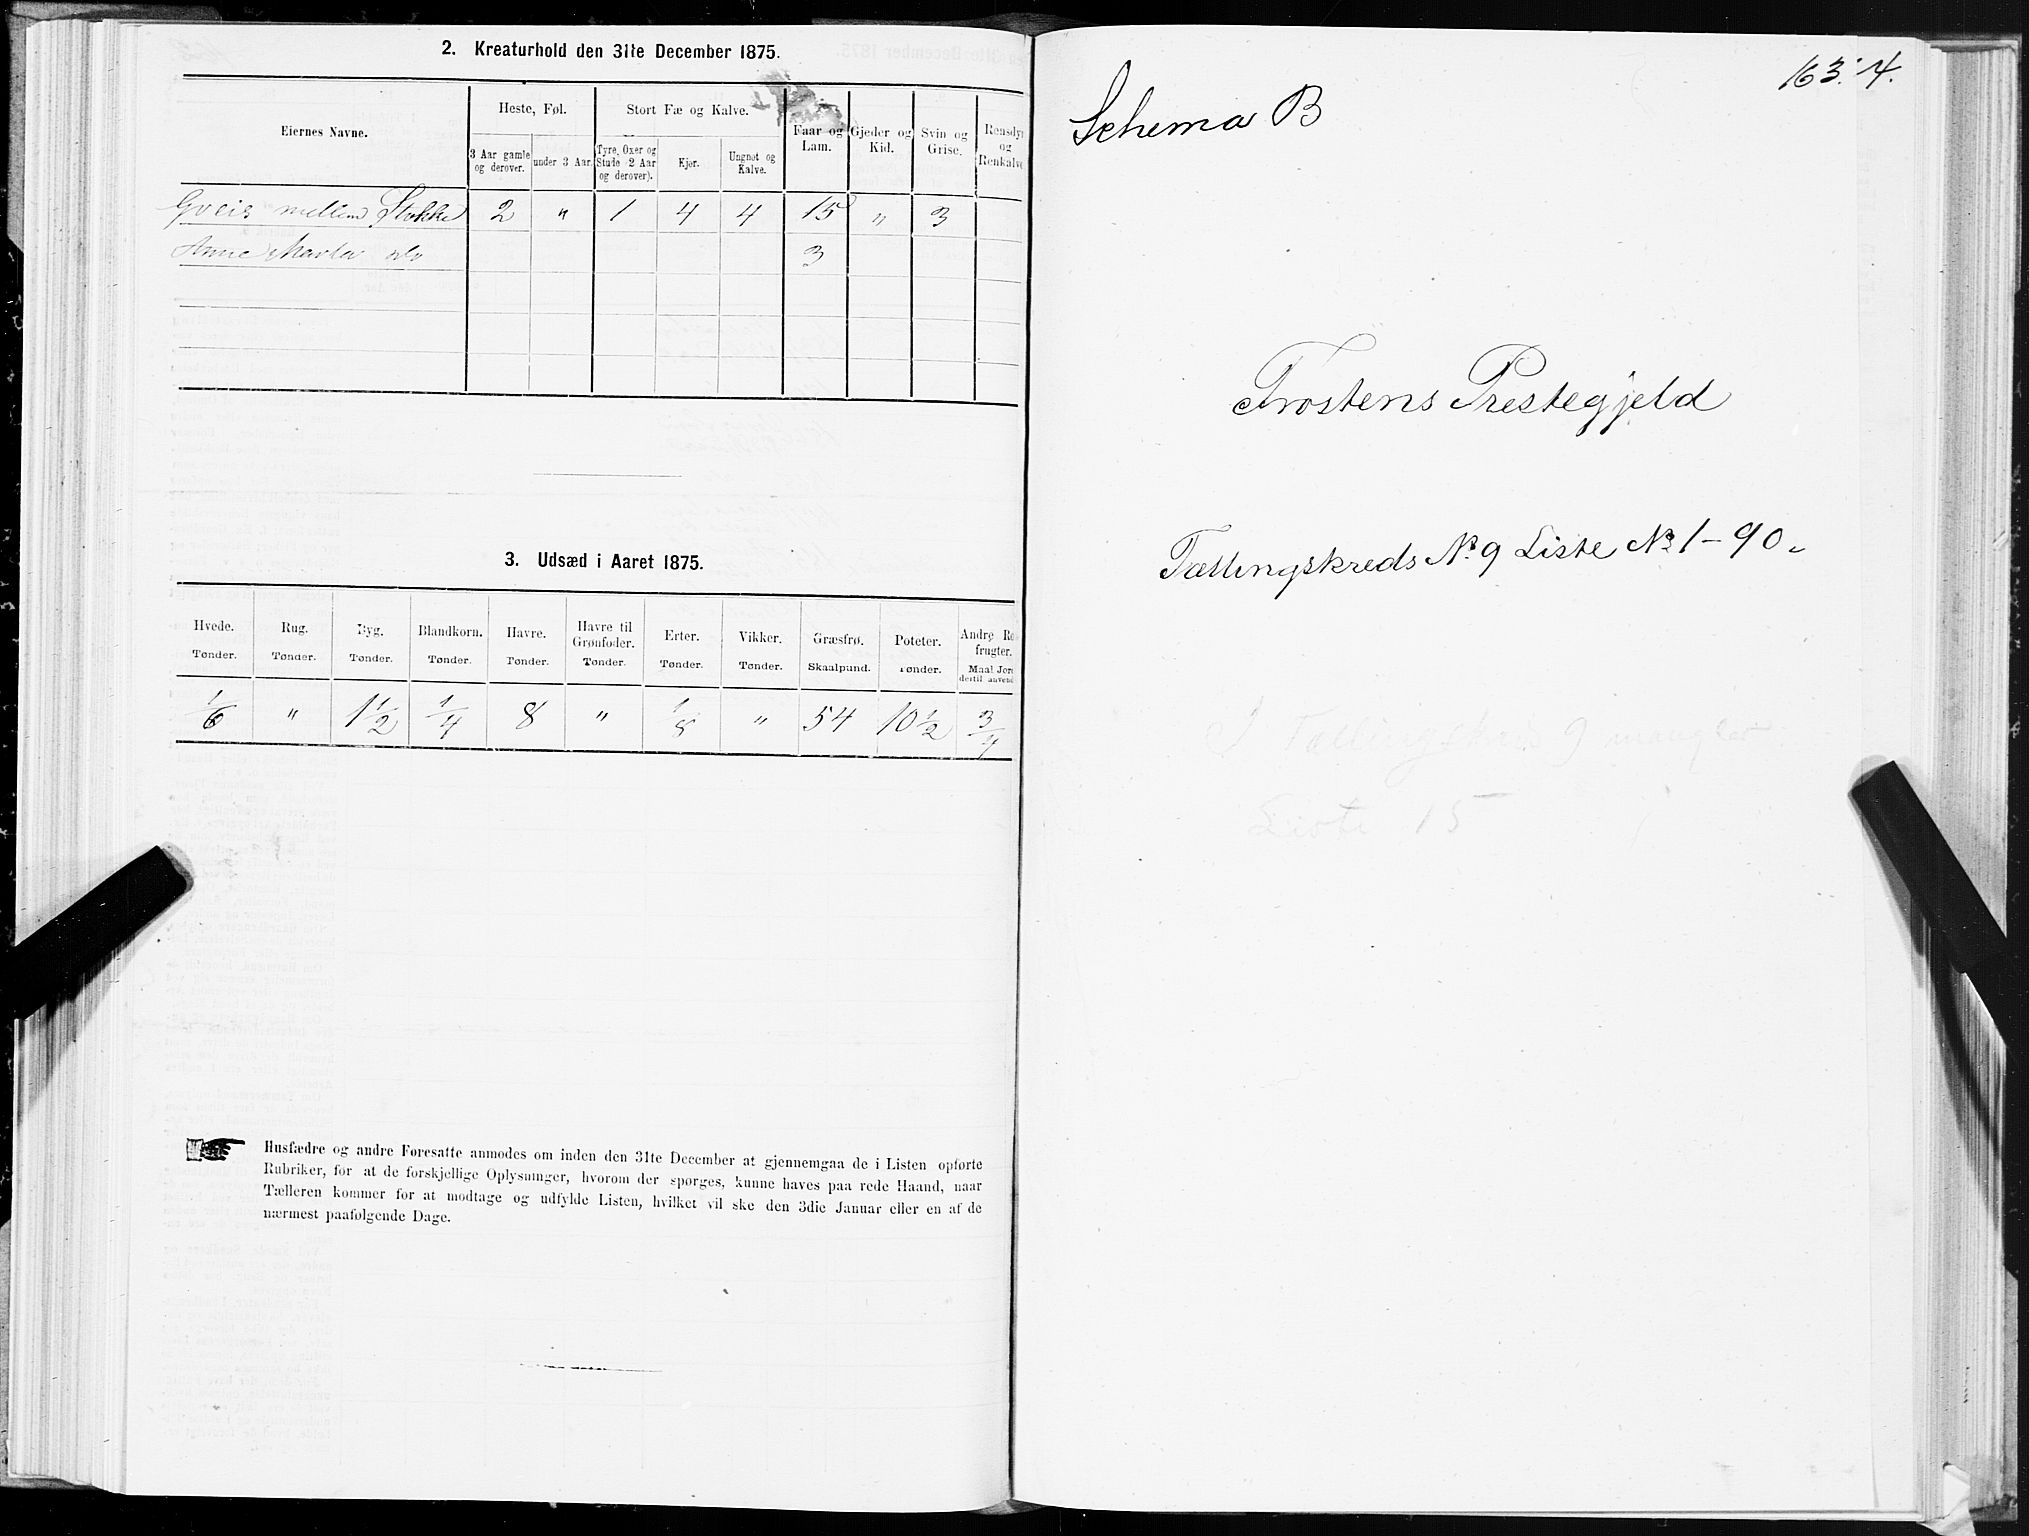 2. Kreaturhold den 31te December 1875.
Eiernes Navne.
Heste, Føl.
Stort Fæ og Kalve.
Faar og Lam.
Gjeder og Kid.
Svin og Grise.
Rensdyr og Renkalve
3 Aar gamle og derover.
under 3 Aar.
Tyre, Oxer og Stude (2 Aar og derover).
Kjør.
Ungnøt og Kalve.
mellem Stokke 2 " 1 4 4 15 " 3
Anne Marta do 3
3. Udsæd i Aaret 1875.
Hvede. Rug. Byg. Blandkorn. Havre. Havre til Grønfoder. Erter. Vikker. Græsfrø. Poteter. Andre Ro frugter.
Tønder. Tønder. Tønder. Tønder. Tønder. Tønder. Tønder. Tønder. Skaalpund. Tønder. Maal Jord dertil anvend
1/6 " 1 1/2 1/4 8 " 1/8 " 54 10 1/2 3/4
Husfædre og andre Foresatte anmodes om inden den 31te December at gjennemgaa de i Listen opførte
Rubriker, for at de forskjellige Oplysninger, hvorom der spørges, kunne haves paa rede Haand, naar
Tælleren kommer for at modtage og udfylde Listen, hvilket vil ske den 3die Januar eller en af de
nærmest paafølgende Dage.
163.4.
Schema B
Frostens Prestegjeld
Tællingskreds No. 9 Liste No 1-90.
I Tællingskreds 9 mangler
Liste 15